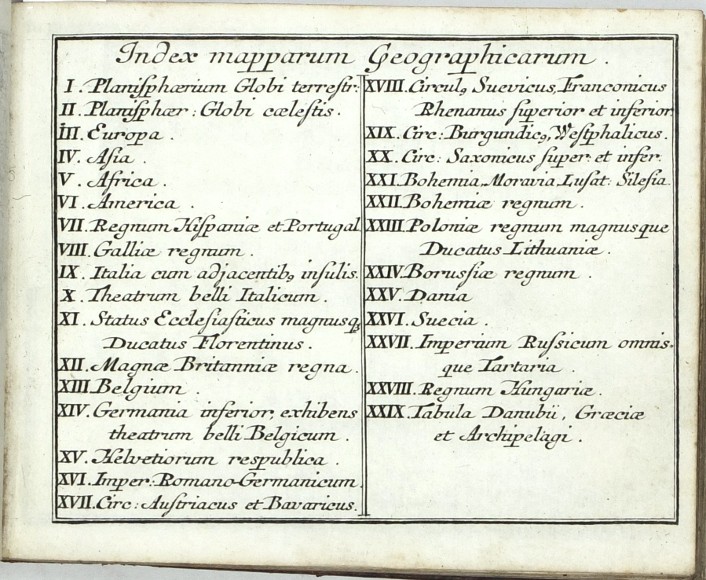 Index mapparum Geographicarum.
I. Planiſphærium Globi terreſtr:
II. Planiſphær: Globi cæleſtis.
III. Europa.
IV. Asia.
V. Africa.
VI. America.
VII. Regnum Hiſpaniæ et Portugal.
VIII. Galliæ regnum.
IX. Italia cum adjacentibꝯ inſulis.
X. Theatrum belli Italicum.
XI. Status Eccleſiaſticus magnusq,
Ducatus Florentinus.
XII. Magnæ Britanniæ regna.
XIII. Belgium.
XIV. Germania inferior, exhibens
theatrum belli Belgicum.
XV. Helvetiorum respublica.
XVI. Imper: Romano-Germanicum.
XVII. Circ: Auſtriacus et Bavaricus.
XVIII. Circulꝯ Suevicus, Franconicus
Rhenanus ſuperior et inferior.
XIX. Circ: Burgundicꝯ, Weſtphalicus.
XX. Circ: Saxonicus ſuper: et infer.
XXI. Bohemia, Moravia, Lusat: Sileſia
XXII. Bohemiæ regnum.
XXIII. Poloniæ regnum magnusque
Ducatus Lithuaniæ.
XXIV. Borusſiæ regnum.
XXV. Dania
XXVI. Suecia.
XXVII. Imperium Rusſicum omnis-
que Tartaria.
XXVIII. Regnum Hungariæ.
XXIX. Tabula Danubii, Græciæ
et Archipelagi.